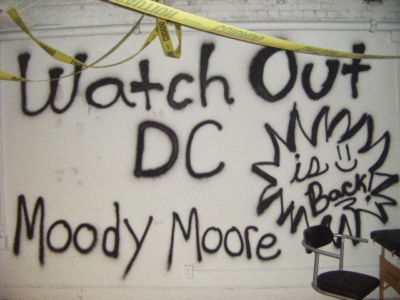 Watch Out
DC
is
Back!
Moody Moore